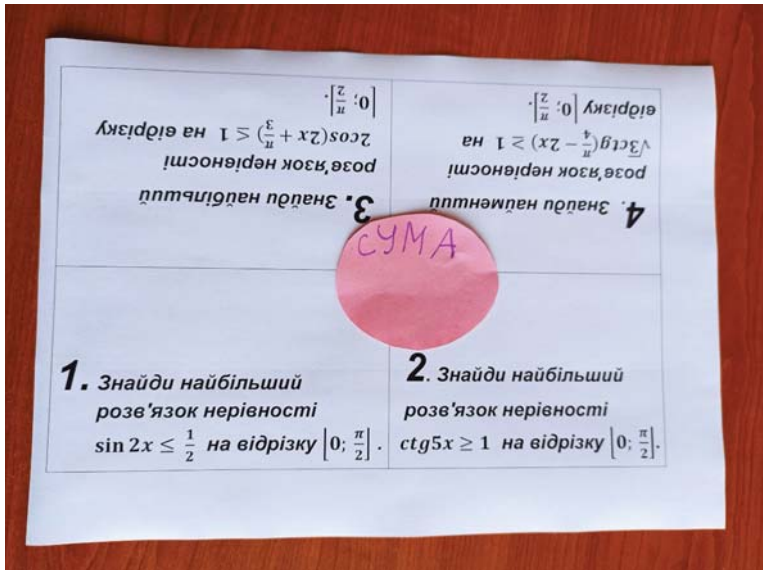 3. Знайди найбільший
розв'язок нерівності
2cos(2x + π/3) ≤ 1 на відрізку
[0; π/2].
4. Знайди найменший
розв'язок нерівності
√3ctg(π/4 − 2x) ≥ 1 на
відрізку [0; π/2].
СУМА
1. Знайди найбільший
розв'язок нерівності
sin 2x ≤ 1/2 на відрізку [0; π/2].
2. Знайди найбільший
розв'язок нерівності
ctg5x ≥ 1 на відрізку [0; π/2].